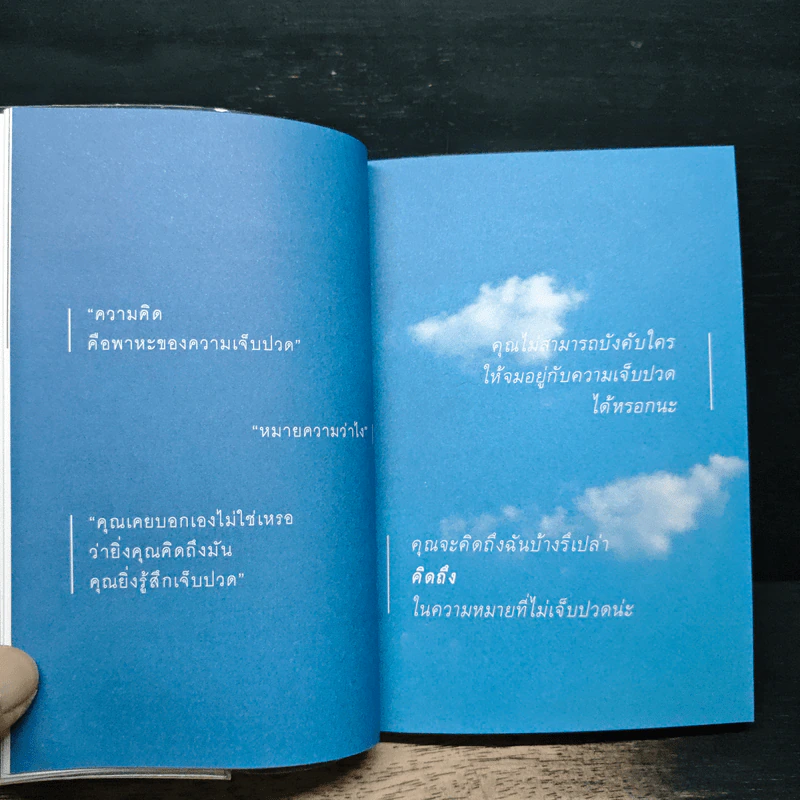 “ความคิด
คือพาหะของความเจ็บปวด”
“หมายความว่าไง”
“คุณเคยบอกเองไม่ใช่เหรอ
ว่ายิ่งคุณคิดถึงมัน
คุณยิ่งรู้สึกเจ็บปวด”
คุณไม่สามารถบังคับใคร
ให้จมอยู่กับความเจ็บปวด
ได้หรอกนะ
คุณจะคิดถึงฉันบ้างรึเปล่า
คิดถึง
ในความหมายที่ไม่เจ็บปวดน่ะ